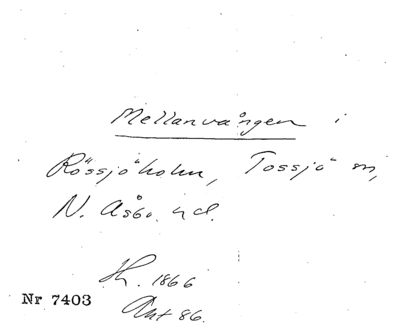 Mellanvången i
Rössjöholm, Tossjö sn,
N. Åsbo hd.
Hr. 1866
Ant 86.
Nr 7403